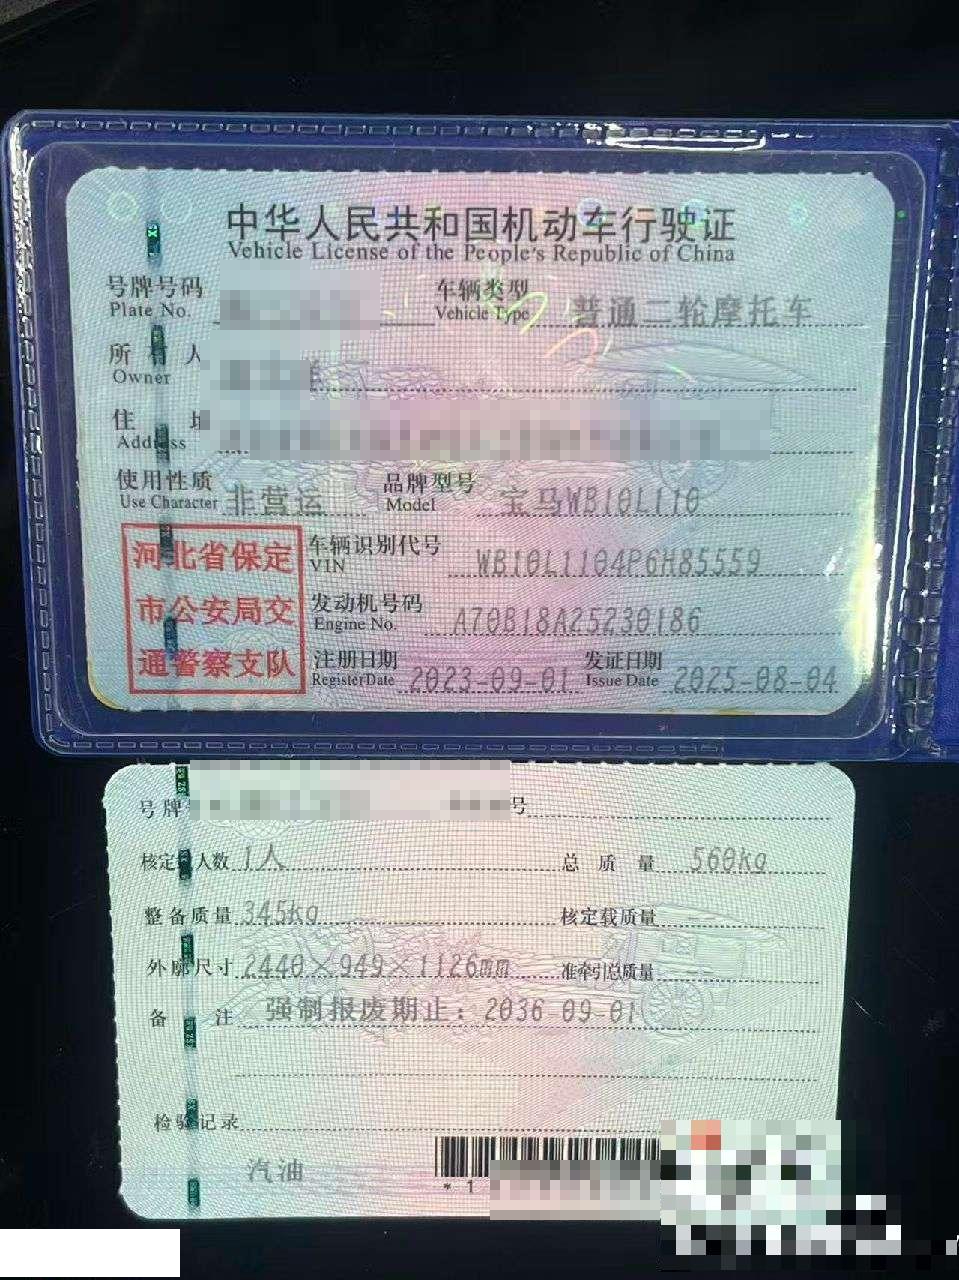 中华人民共和国机动车行驶证
Vehicle License of the People's Republic of China
号牌号码 车辆类型 普通二轮摩托车
Plate No. Vehicle Type
所有人
Owner
住址
Address
使用性质 非营运 品牌型号 宝马WB10L110
Use Character Model
河北省保定
市公安局交
通警察支队
车辆识别代号 WB10L1104P6H85559
VIN
发动机号码 A70B18A25230186
Engine No.
注册日期 2023-09-01 发证日期 2025-08-04
Register Date Issue Date
号牌 号
核定 人数 1人 总质量 560kg
整备质量 345kg 核定载质量
外廓尺寸 2440×949×1126mm 准牵引总质量
备注 强制报废期止：2036-09-01
检验记录
汽油
*1